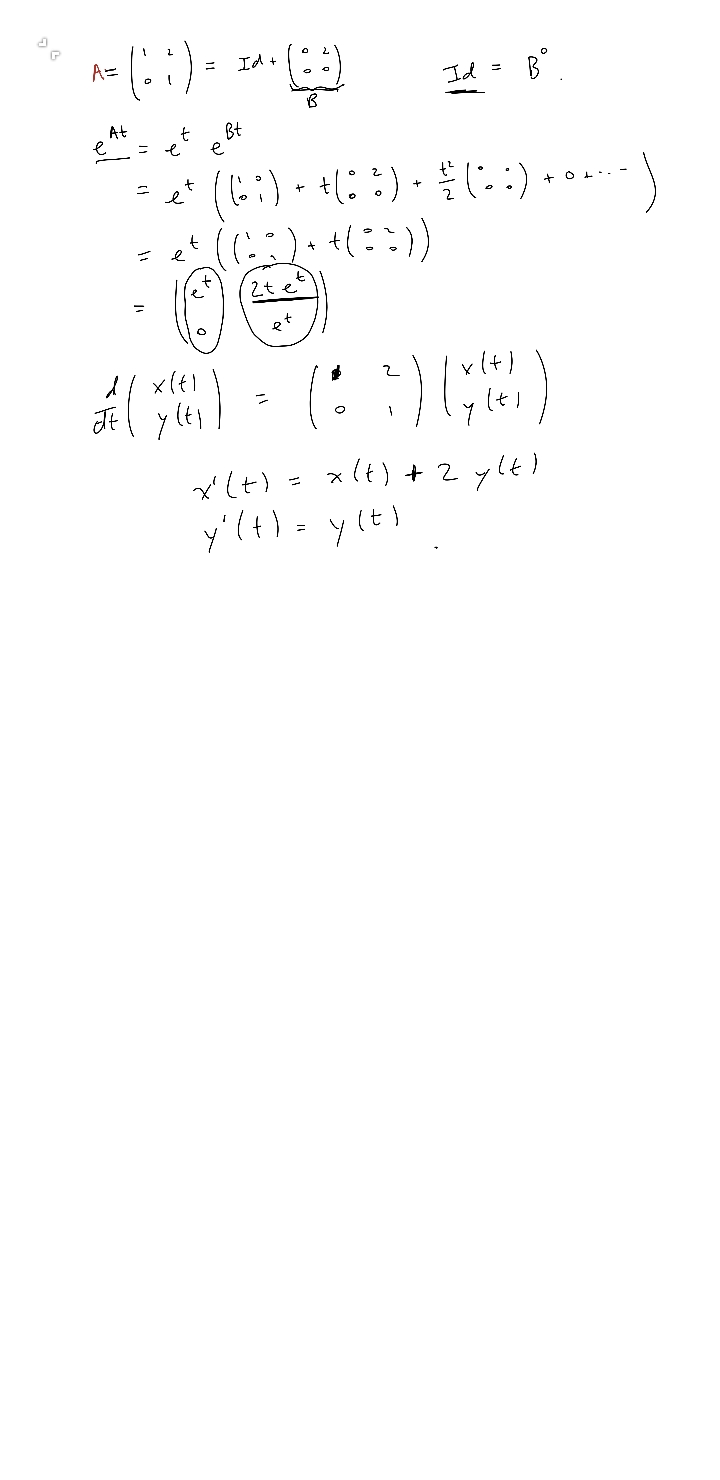 A = ( 1 2 ; 0 1 ) = Id + ( 0 2 ; 0 0 )   Id = B⁰ .
B
e^{At} = e^t e^{Bt}
= e^t ( ( 1 0 ; 0 1 ) + t ( 0 2 ; 0 0 ) + t²/2 ( 0 0 ; 0 0 ) + 0 + ... )
= e^t ( ( 1 0 ; 0 1 ) + t ( 0 2 ; 0 0 ) )
= ( e^t 2t e^t ; 0 e^t )
d/dt ( x(t) ; y(t) ) = ( 1 2 ; 0 1 ) ( x(t) ; y(t) )
x'(t) = x(t) + 2 y(t)
y'(t) = y(t)